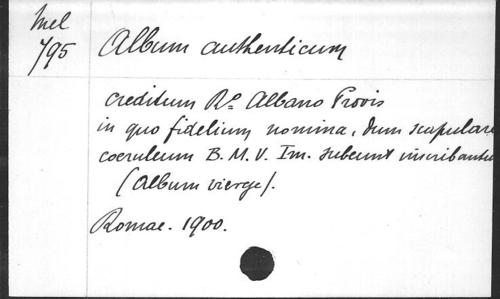 Mel
795
Album authenticum
creditum R° Albano Provis
in quo fidelium nomina, dum scapulare
coeruleum B. M. V. Im. subeunt inscribantu
(Album vierge).
Romae. 1900.